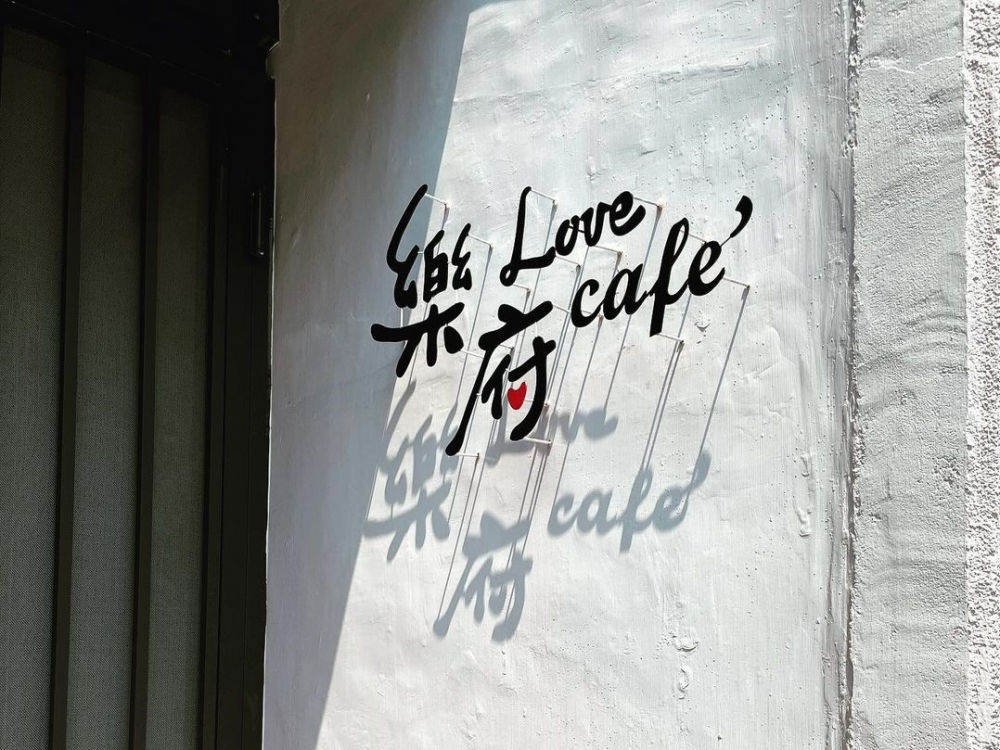 樂府
Love
café